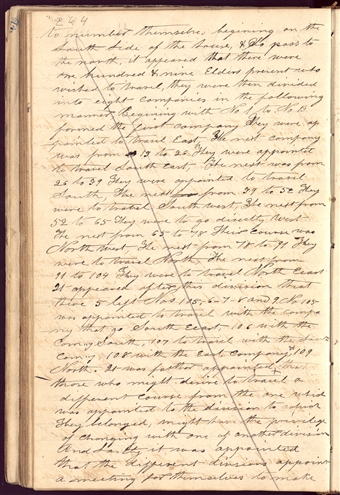 244
to number themselves, beginning on the
South Side of the house, & to pass to
the north, it appeared that there were
one hundred & nine Elders present who
wished to travel, they were then divided
into eight Companies in the following
manner Begining with No 1 to No 13
formed the first company They were ap
pointed to travel East, The next company
was from 13 to 26 They were appointed
to travel South East, The next was from
26 to 39 They were appointed to travel
South, The next from 39 to 52 They
were to travel South west, The next from
52 to 65 They were to go directly West
The next from 65 to 78 Their course was
North West, The next from 78 to 91 They
were to travel North, The next from
91 to 104 They were to travel North East
It appeared after this division that
there 5 left Nos 105, 6-7-8 and 9 No 105
was appointed to travel with the compa
ny that go South East. 106 with the
Comy South, 107 to travel with the
Comy 108 with the East Company & 109
North. It was further appointed that
those who might desire to travel a
different course from the one which
was appointed to the division to which
They belonged, might have the privilege
of changing with one of another division
And Lastly it was appointed
that the different divisions appoint
a meeting for themselves to make